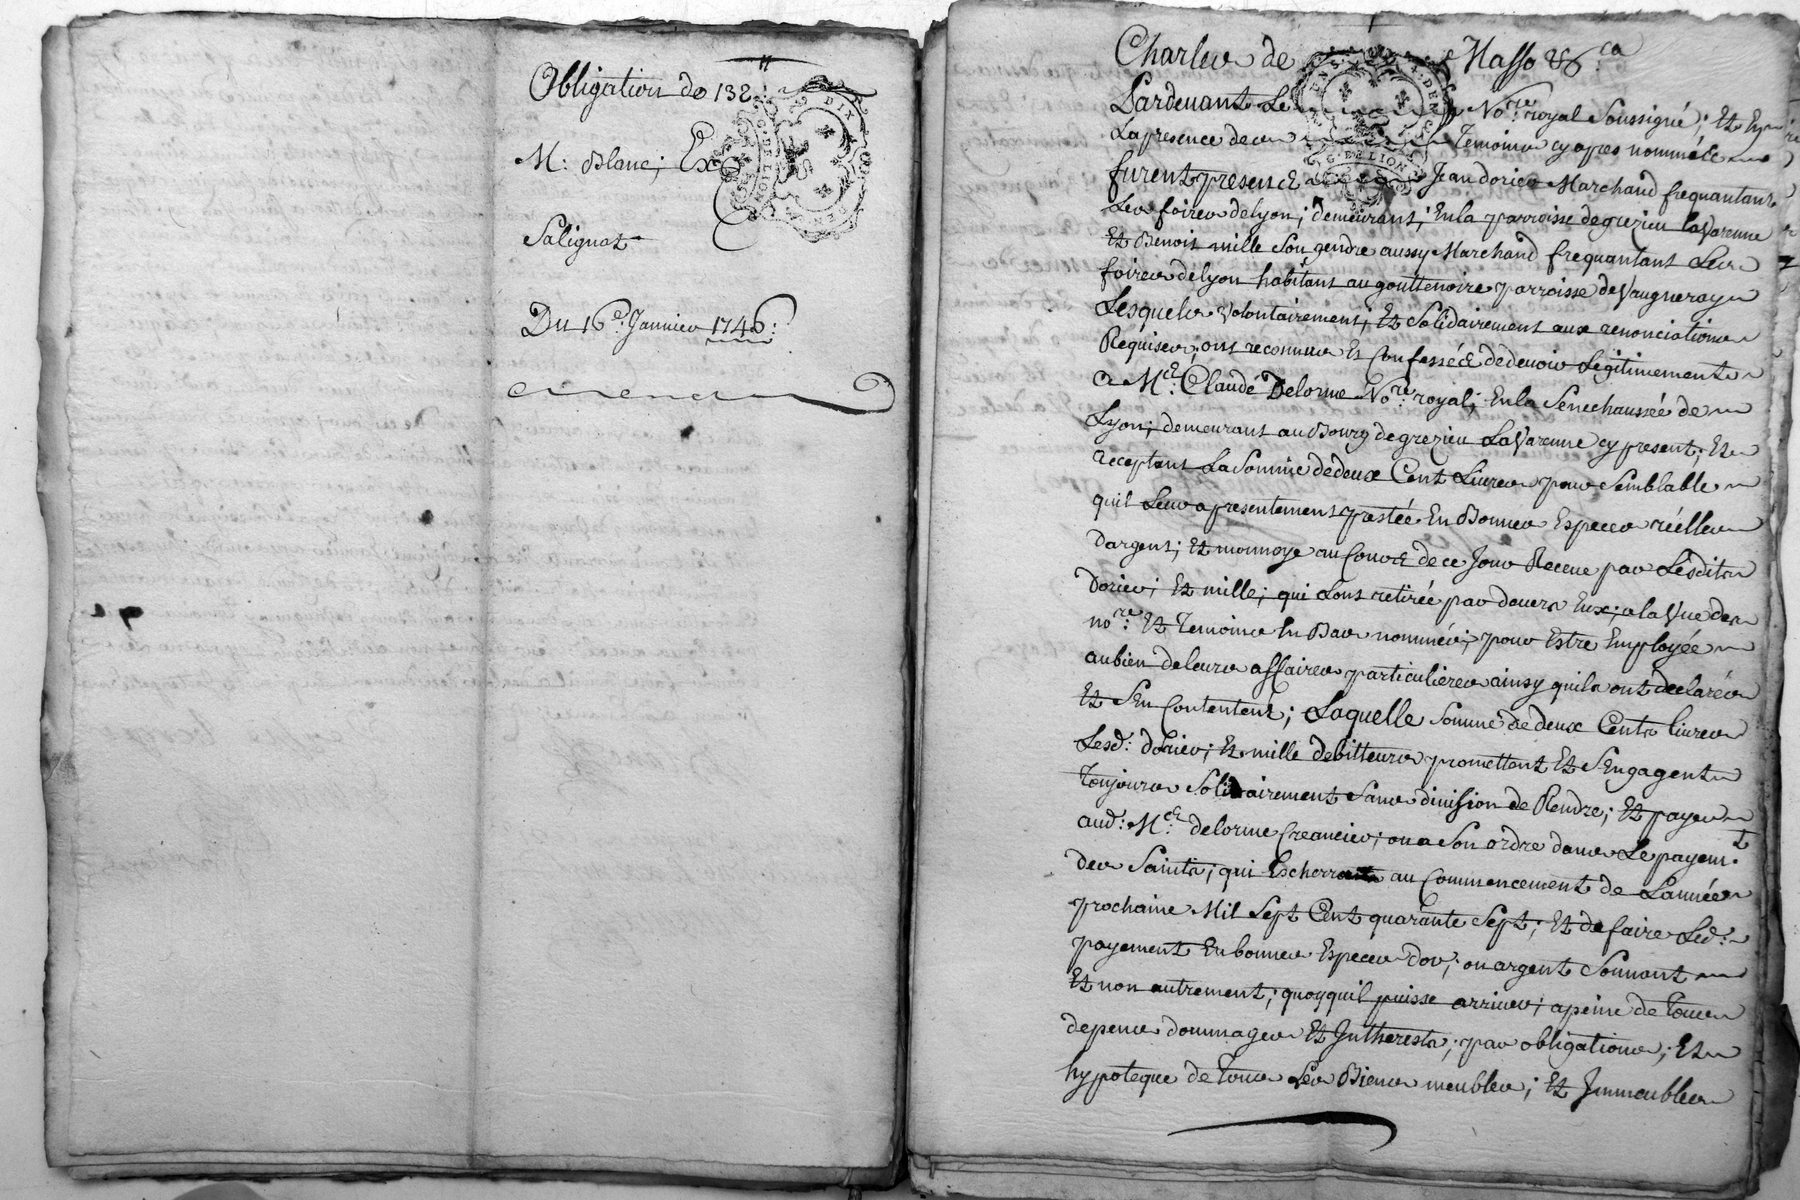 Obligation de 132
M: Blanc; Ex
Salignat
Du 16e. Janvier 1746:
Charles de Masso &c.a
Pardevant Le No.re royal Soussigné; Et En
La presence des Temoins cy apres nommés
furent presents Jean dorier Marchand frequantant
Les foires de lyon; demeurant; En la parroisse de grezieu la Varenne
Et Benoit mille Son gendre aussy Marchand frequantant Les
foires de lyon habitant au gouttenoire parroisse de Vaugneray
Lesquels volontairement; Et Solidairement aux renonciations
Requises; ont reconnus Et Confessés de devoir Legitimement
a M.e Claude Delorme No.re royal; En la Senechaussée de
Lyon; demeurant au Bourg de grezieu La Varenne cy present; Et
acceptant La Somme de deux Cent Livres pour Semblable
quil Leur a presentement prestée En Bonnes Especes réelles
dargent; Et monnoye au Cours de ce Jour Receue par Lesdits
Dorier; Et mille; qui Lont retirée par devers Eux; a la Vue des
no.re Et Temoins En Bas nommés; pour Estre Employée
au bien de leurs affaires particulieres ainsy quils ont declarés
Et S'En Contentent; Laquelle Somme de deux Cents livres
Lesd: dorier; Et mille debitteurs promettent Et S'Engagent
Toujours Solidairement Sans division de Rendre; Et payer
aud: M.e delorme Creancier; ou a Son ordre dans Le payem.t
des Saints; qui Escherra au Commencement de Lannée
prochaine Mil Sept Cent quarante Sept; Et de faire Led:
payement En bonnes Especes dor; ou argent Sonnant
Et non autrement; quoyquil puisse arriver; a peine de tous
depens dommages Et Intherests; par obligations; Et
hypoteque de tous Les Biens meubles; Et Immeubles